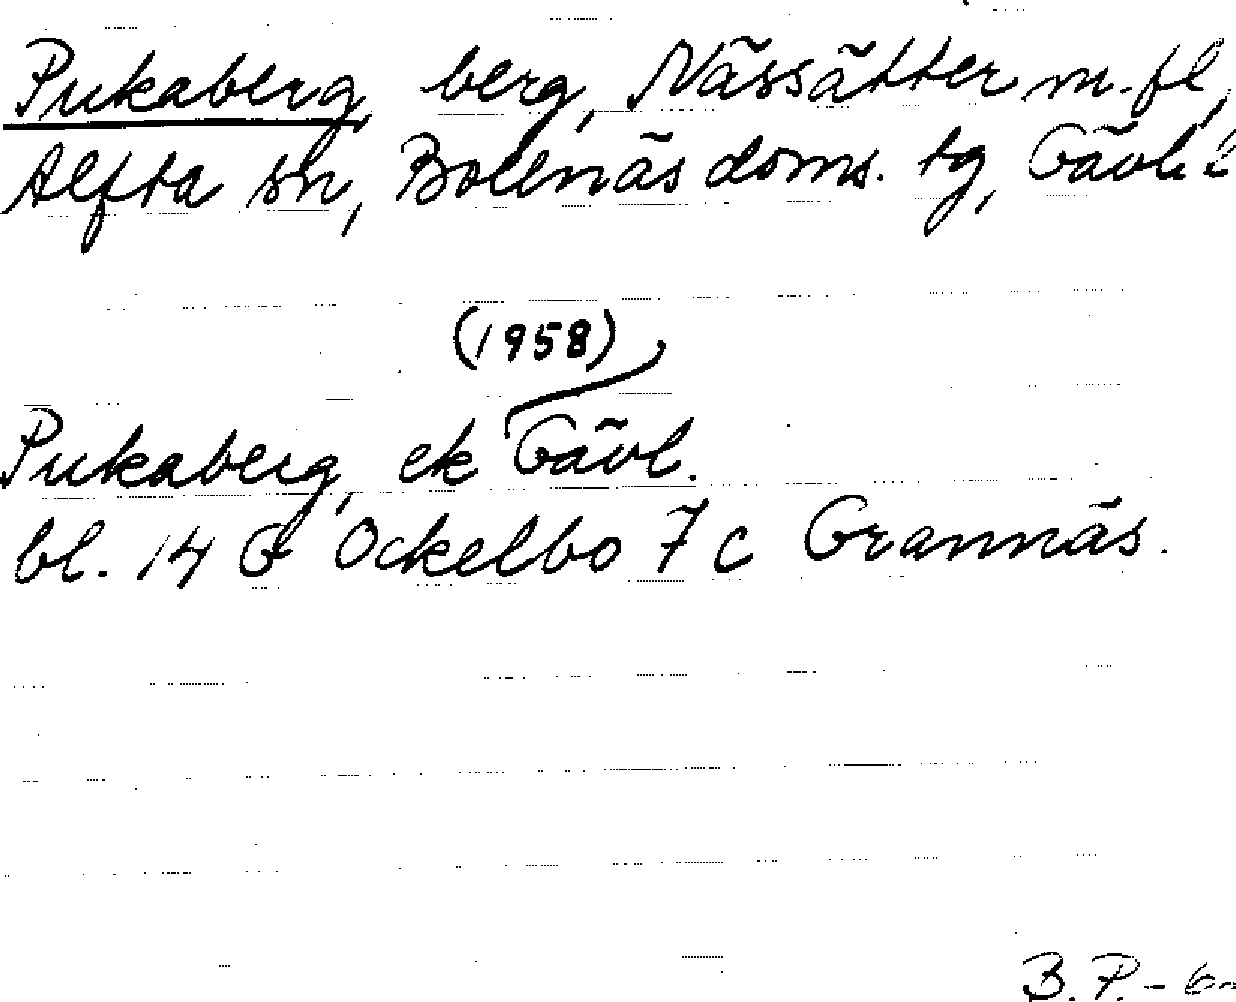 Pukaberg, berg, Nässätter m.fl,
Alfta sn, Bollnäs doms. tg, Gävl.
(1958)
Pukaberg, ek Gävl.
bl. 14 G Ockelbo 7 c Grannäs.
B. P. -